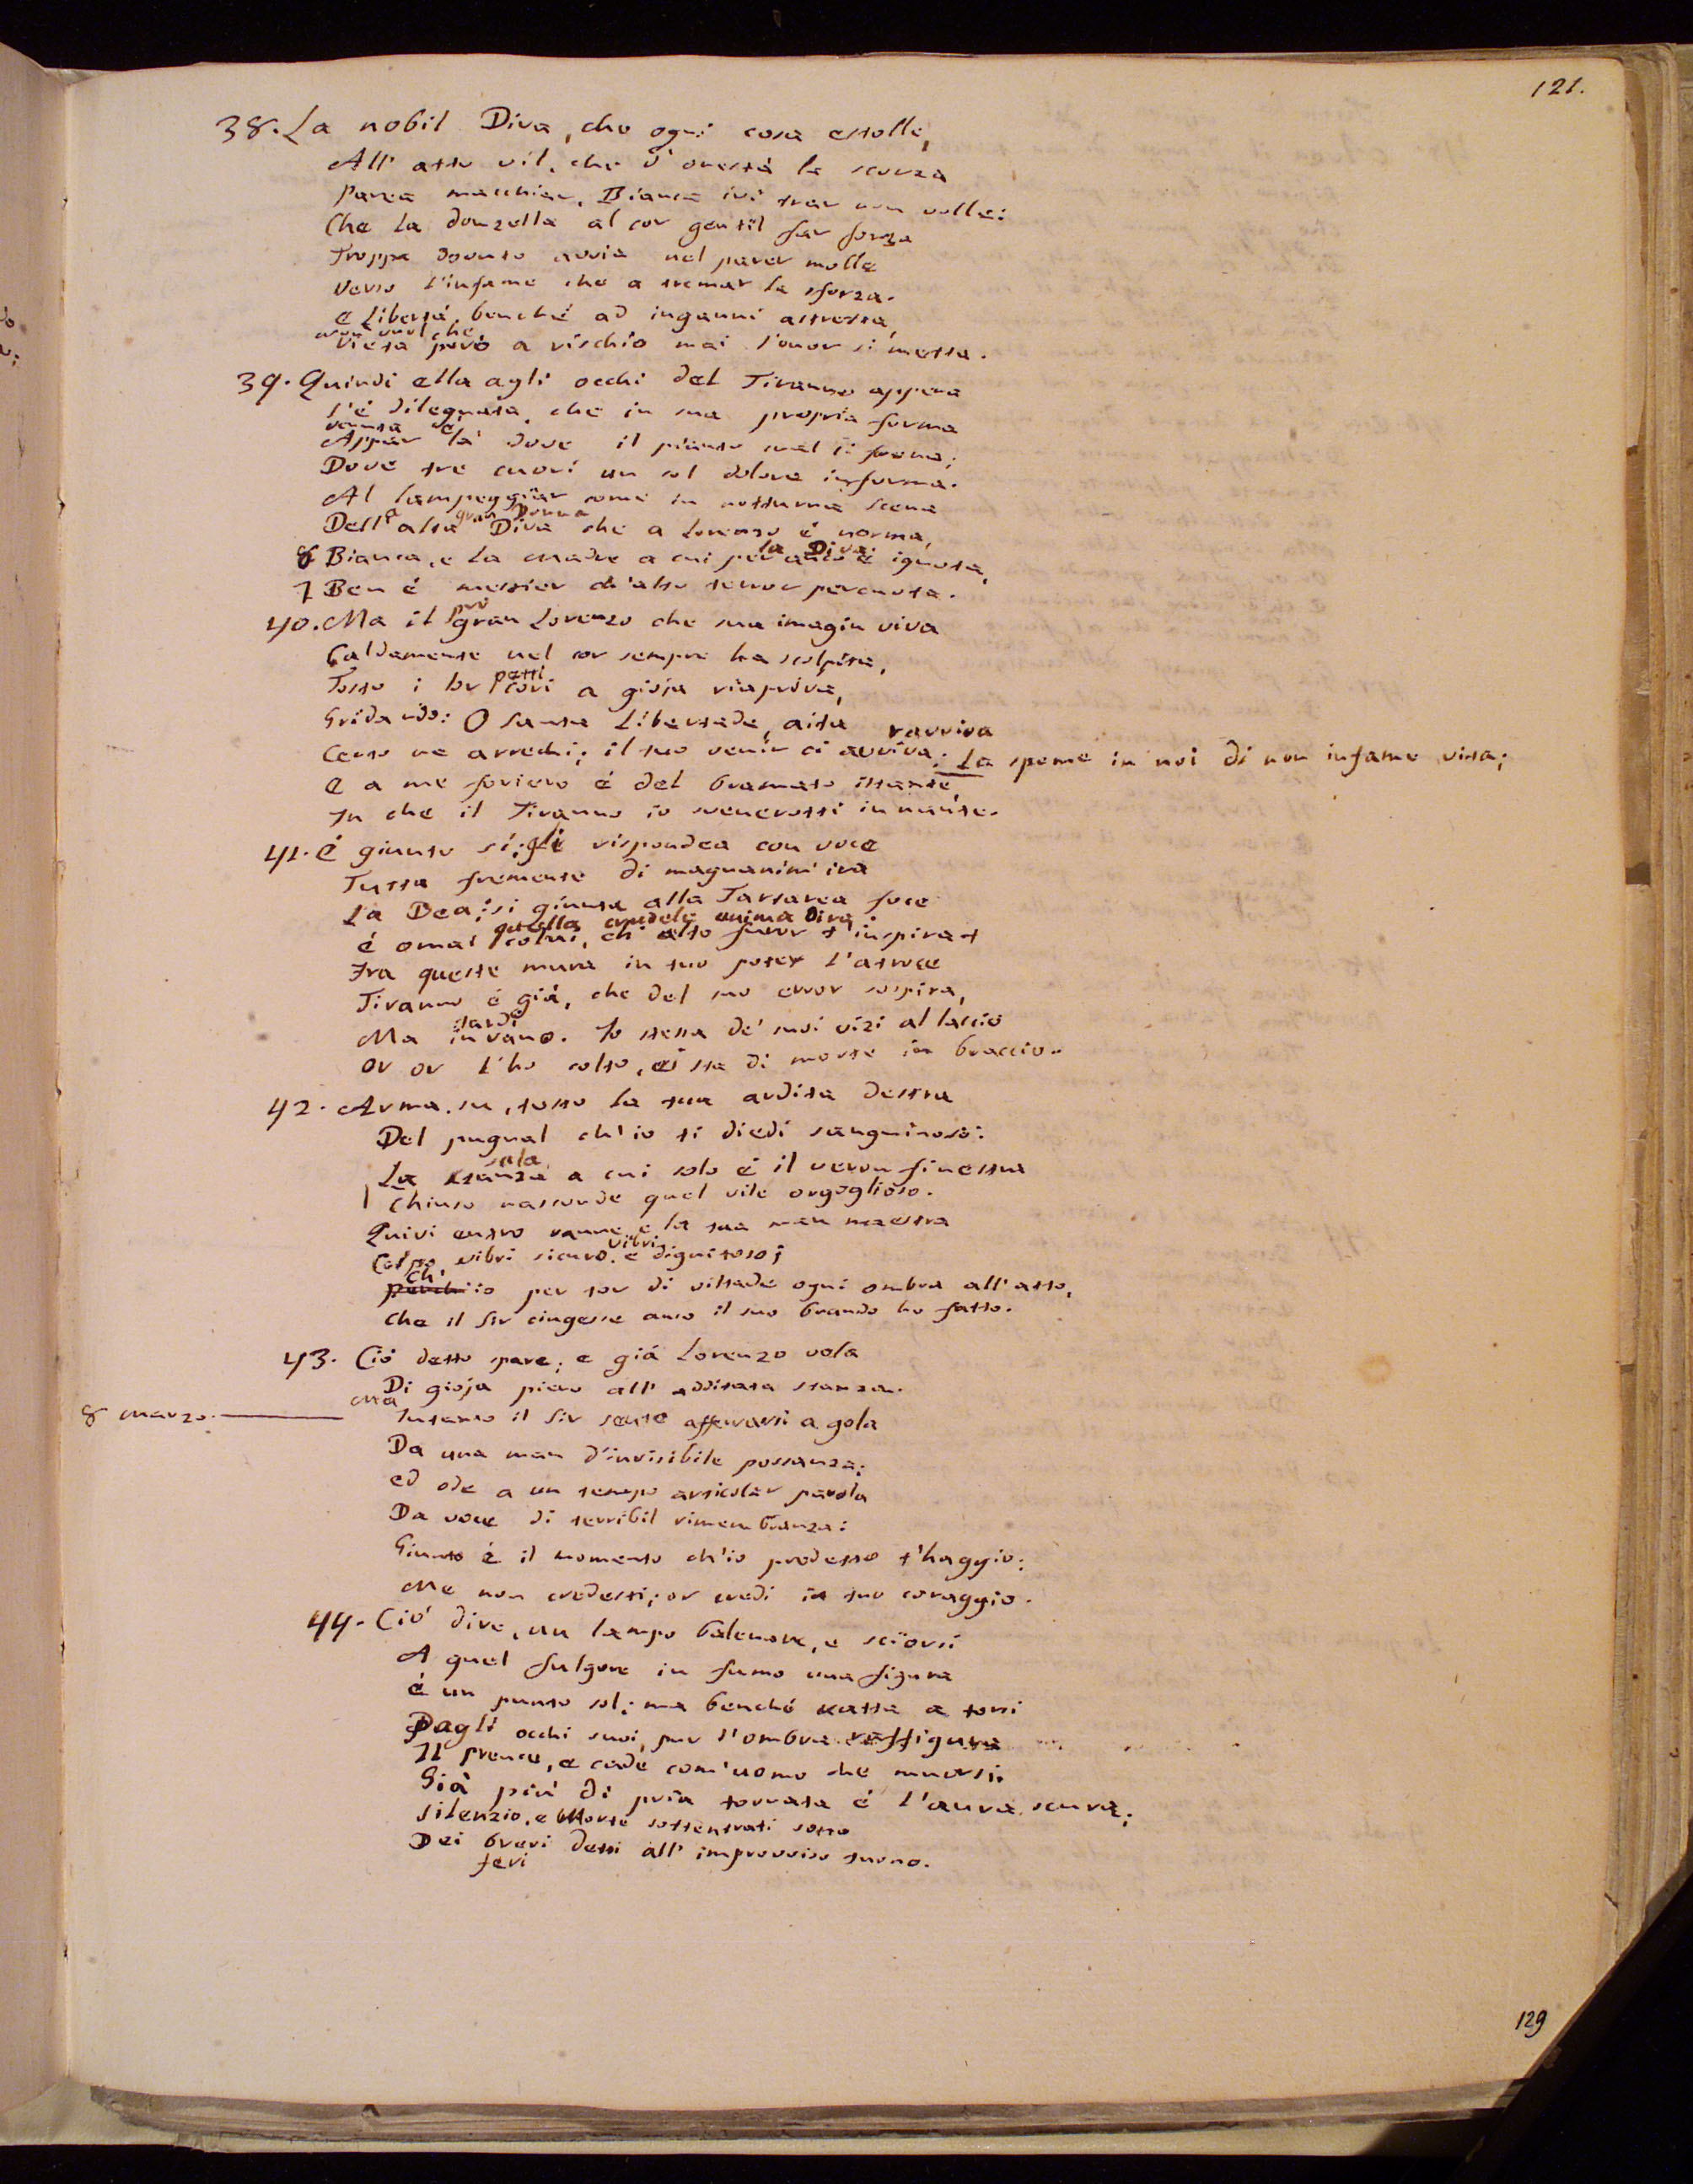 121.
38. La nobil Diva, che ogni cosa estolle,
All' atto vil, che d'onestà la scorza
Parea macchiar, Bianca ivi trar non volle:
Che la donzella al cor gentil far forza
Troppa dovuto avria nel parer molle
Verso l'infame che a tremar la sforza.
E Libertà, benchè ad inganni astretta,
non vuol che
Vieta però a rischio mai l'onor si metta.
39. Quindi ella agli occhi del Tiranno appena
S'è dileguata, che in sua propria forma
venuta è
Appar là dove il pianto mal si frena;
Dove tre cuori un sol dolore informa.
Al lampeggiar come in notturna scena
a gran Donna
Dell' alta Diva che a Lorenzo è norma,
la Diva
8 Bianca, e la madre a cui per anco è ignota,
7 Ben è mestier ch'alto terror percuota.
prò
40. Ma il gran Lorenzo che sua imagin viva
Caldamente nel cor sempre ha scolpita,
petti
Tosto i lor cori a gioja riapriva,
Gridando: O santa Libertade, aita
ravviva
Certo ne arrechi; il tuo venir ci avviva: La speme in noi di non infame vita;
E a me foriero è del bramato istante,
In che il Tiranno io svenerotti innante.
41. È giunto sì; gli rispondea con voce
Tutta fremente di magnanim' ira
La Dea; sì giunta alla Tartarea foce
quella crudele anima dira
è omai colui, ch' alto furor t'inspira
Fra queste mura in tuo poter l'atroce
Tiranno è già, che del suo error sospira,
tardi
Ma invano. Io stessa de' suoi vizi al laccio
Or or l'ho colto, ei sta di morte in braccio.
42. Arma, su, tosto la tua ardita destra
Del pugnal ch'io ti diedi sanguinoso:
sala
La stanza a cui solo è il veron finestra
Chiuso nasconde quel vile orgoglioso.
Quivi entro vanne, e la tua man maestra
vibri
Colpo vibri sicuro e dignitoso;
Ch'
perch'io per tor di viltade ogni ombra all' atto,
Che il Sir cingesse anco il suo brando ho fatto.
43. Ciò detto spare; e già Lorenzo vola
Di gioja pieno all' additata stanza.
8 marzo.
Ma
Intanto il Sir sente afferrarsi a gola
Da una man d'invisibile possanza;
ed ode a un tempo articolar parola
Da voce di terribil rimembranza:
Giunto è il momento ch'io predetto t'haggio:
Me non credesti; or credi in tuo coraggio.
44. Ciò dire, un lampo balenare, e sciorsi
A quel fulgore in fumo una figura
è un punto sol; ma benchè ratta a torsi
Dagli occhi suoi, pur l'ombra raffigura
Il Prence, e cade com'uomo che muorsi.
Già più di pria tornata è l'aura scura;
Silenzio, e Morte sottentrati sono
Dei brevi detti all' improvviso suono.
feri
129